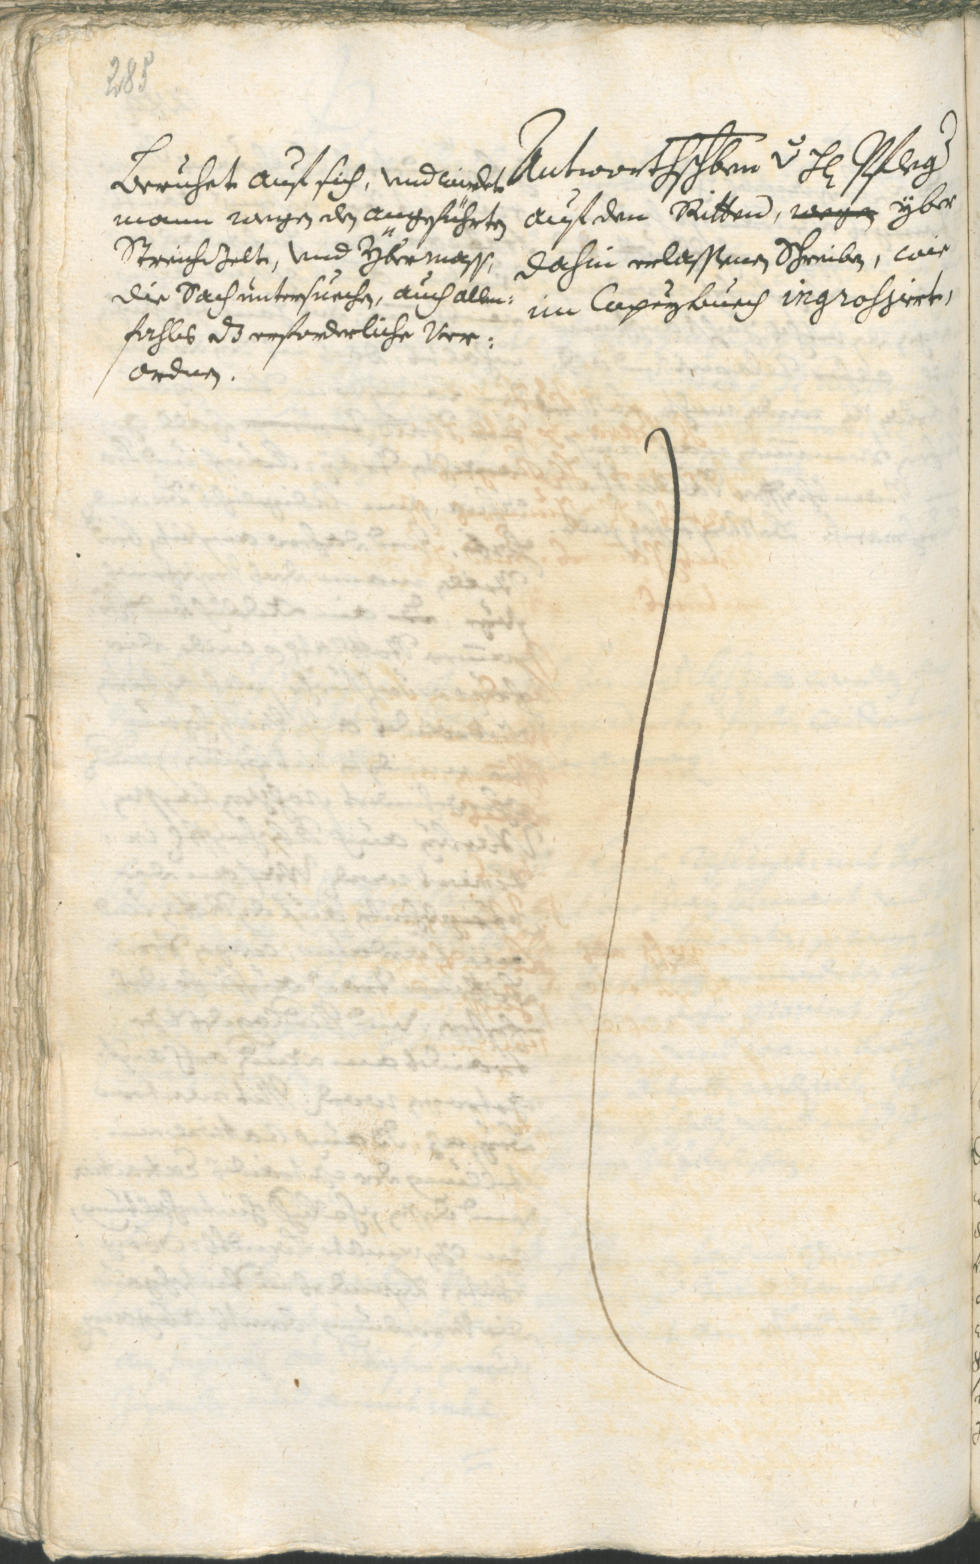 285
Beruhet auf sich, und würdet
mann wegen der angeführten
Streichgelt, und Ybermass,
die Sach untersuechen, auch allen:
fahls dz erforderliche ver:
ordnen.
Antworthschben v H Pfleg
auf den Ritten, wegen yber
dahin erlassenen Schreiben, wie
im Copeybuech ingrohsirt,